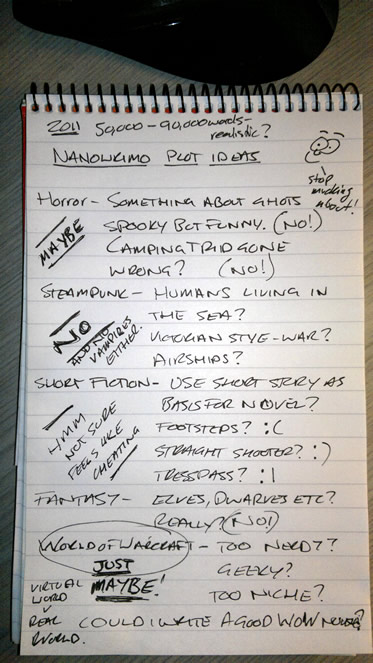 2011 50,000 - 90,000 words -
realistic?
NANOWRIMO PLOT IDEAS
stop
mucking
about!
Horror - SOMETHING ABOUT GHOTS
SPOOKY BUT FUNNY. (NO!)
MAYBE
CAMPING TRIP GONE
WRONG? (NO!)
STEAMPUNK - HUMANS LIVING IN
THE SEA?
NO
AND NO
VAMPIRES
EITHER.
VICTORIAN STYE - WAR?
AIRSHIPS?
SHORT FICTION - USE SHORT STORY AS
BASIS FOR NOVEL?
HMM
NOT SURE
FEELS LIKE
CHEATING
FOOTSTEPS? :(
STRAIGHT SHOOTER? :)
TRESSPASS? :|
FANTASY - ELVES, DWARVES ETC?
REALLY? (NO!)
WORLD OF WARCRAFT - TOO NERDY?
JUST
MAYBE!
GEEKY?
TOO NICHE?
VIRTUAL
WORLD
V
REAL
WORLD.
COULD I WRITE A GOOD WOW NOVEL?